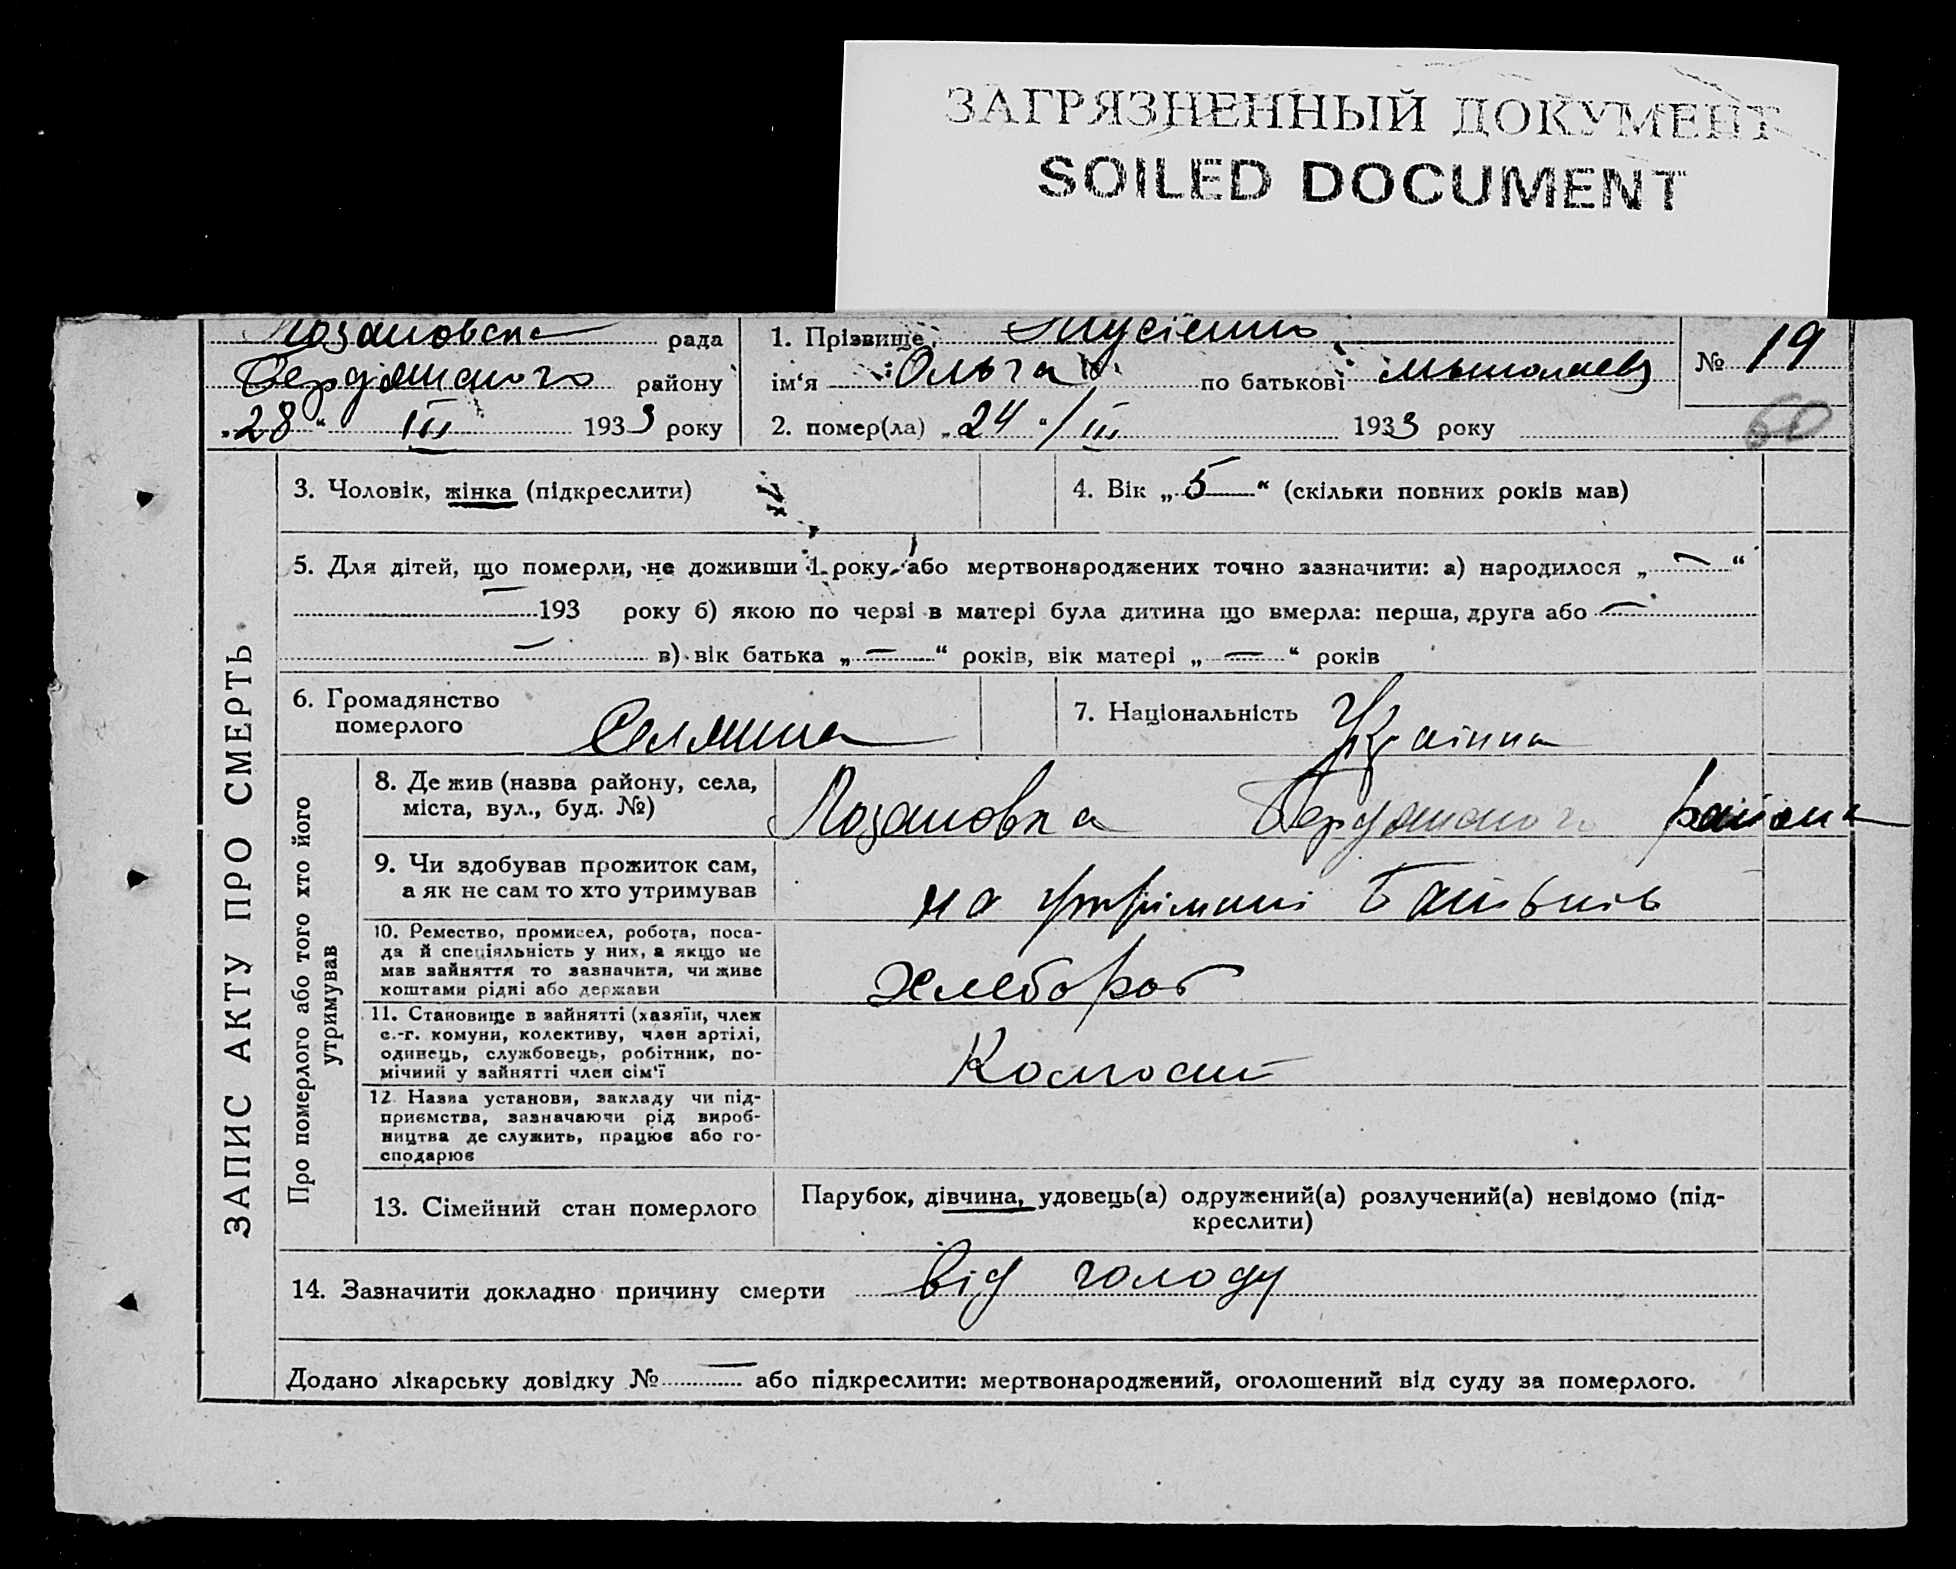 ЗАГРЯЗНЕННЫЙ ДОКУМЕНТ
SOILED DOCUMENT
рада
1. Прізвище
№ 19
району
ім‘я Ольга по батькові
„28“ III 1933 року
2. помер(ла) „24“ / III 1933 року
60
ЗАПИС АКТУ ПРО СМЕРТЬ
3. Чоловік, жінка (підкреслити)
4. Вік „5“ (скільки повних років мав)
5. Для дітей, що померли, не доживши 1 року або мертвонароджених точно зазначити: а) народилося „—“
— 193 року б) якою по черзі в матері була дитина що вмерла: перша, друга або —
— в) вік батька „—“ років, вік матері „—“ років
6. Громадянство
померлого
7. Національність
Про померлого або того хто його
утримував
8. Де жив (назва району, села,
міста, вул., буд. №)
9. Чи здобував прожиток сам,
а як не сам то хто утримував
на батьків
10. Ремество, промисел, робота, поса-
да й спеціяльність у них, а якщо не
мав зайняття то зазначити, чи живе
коштами рідні або держави
хлебороб
11. Становище в зайнятті (хазяїн, член
с.-г. комуни, колективу, член артілі,
одинець, службовець, робітник, по-
мічний у зайнятті член сім‘ї
12. Назва установи, закладу чи під-
приємства, зазначаючи рід вироб-
ництва де служить, працює або го-
сподарює
13. Сімейний стан померлого
Парубок, дівчина, удовець(а) одружений(а) розлучений(а) невідомо (під-
креслити)
14. Зазначити докладно причину смерти від голоду
Додано лікарську довідку № — або підкреслити: мертвонароджений, оголошений від суду за померлого.